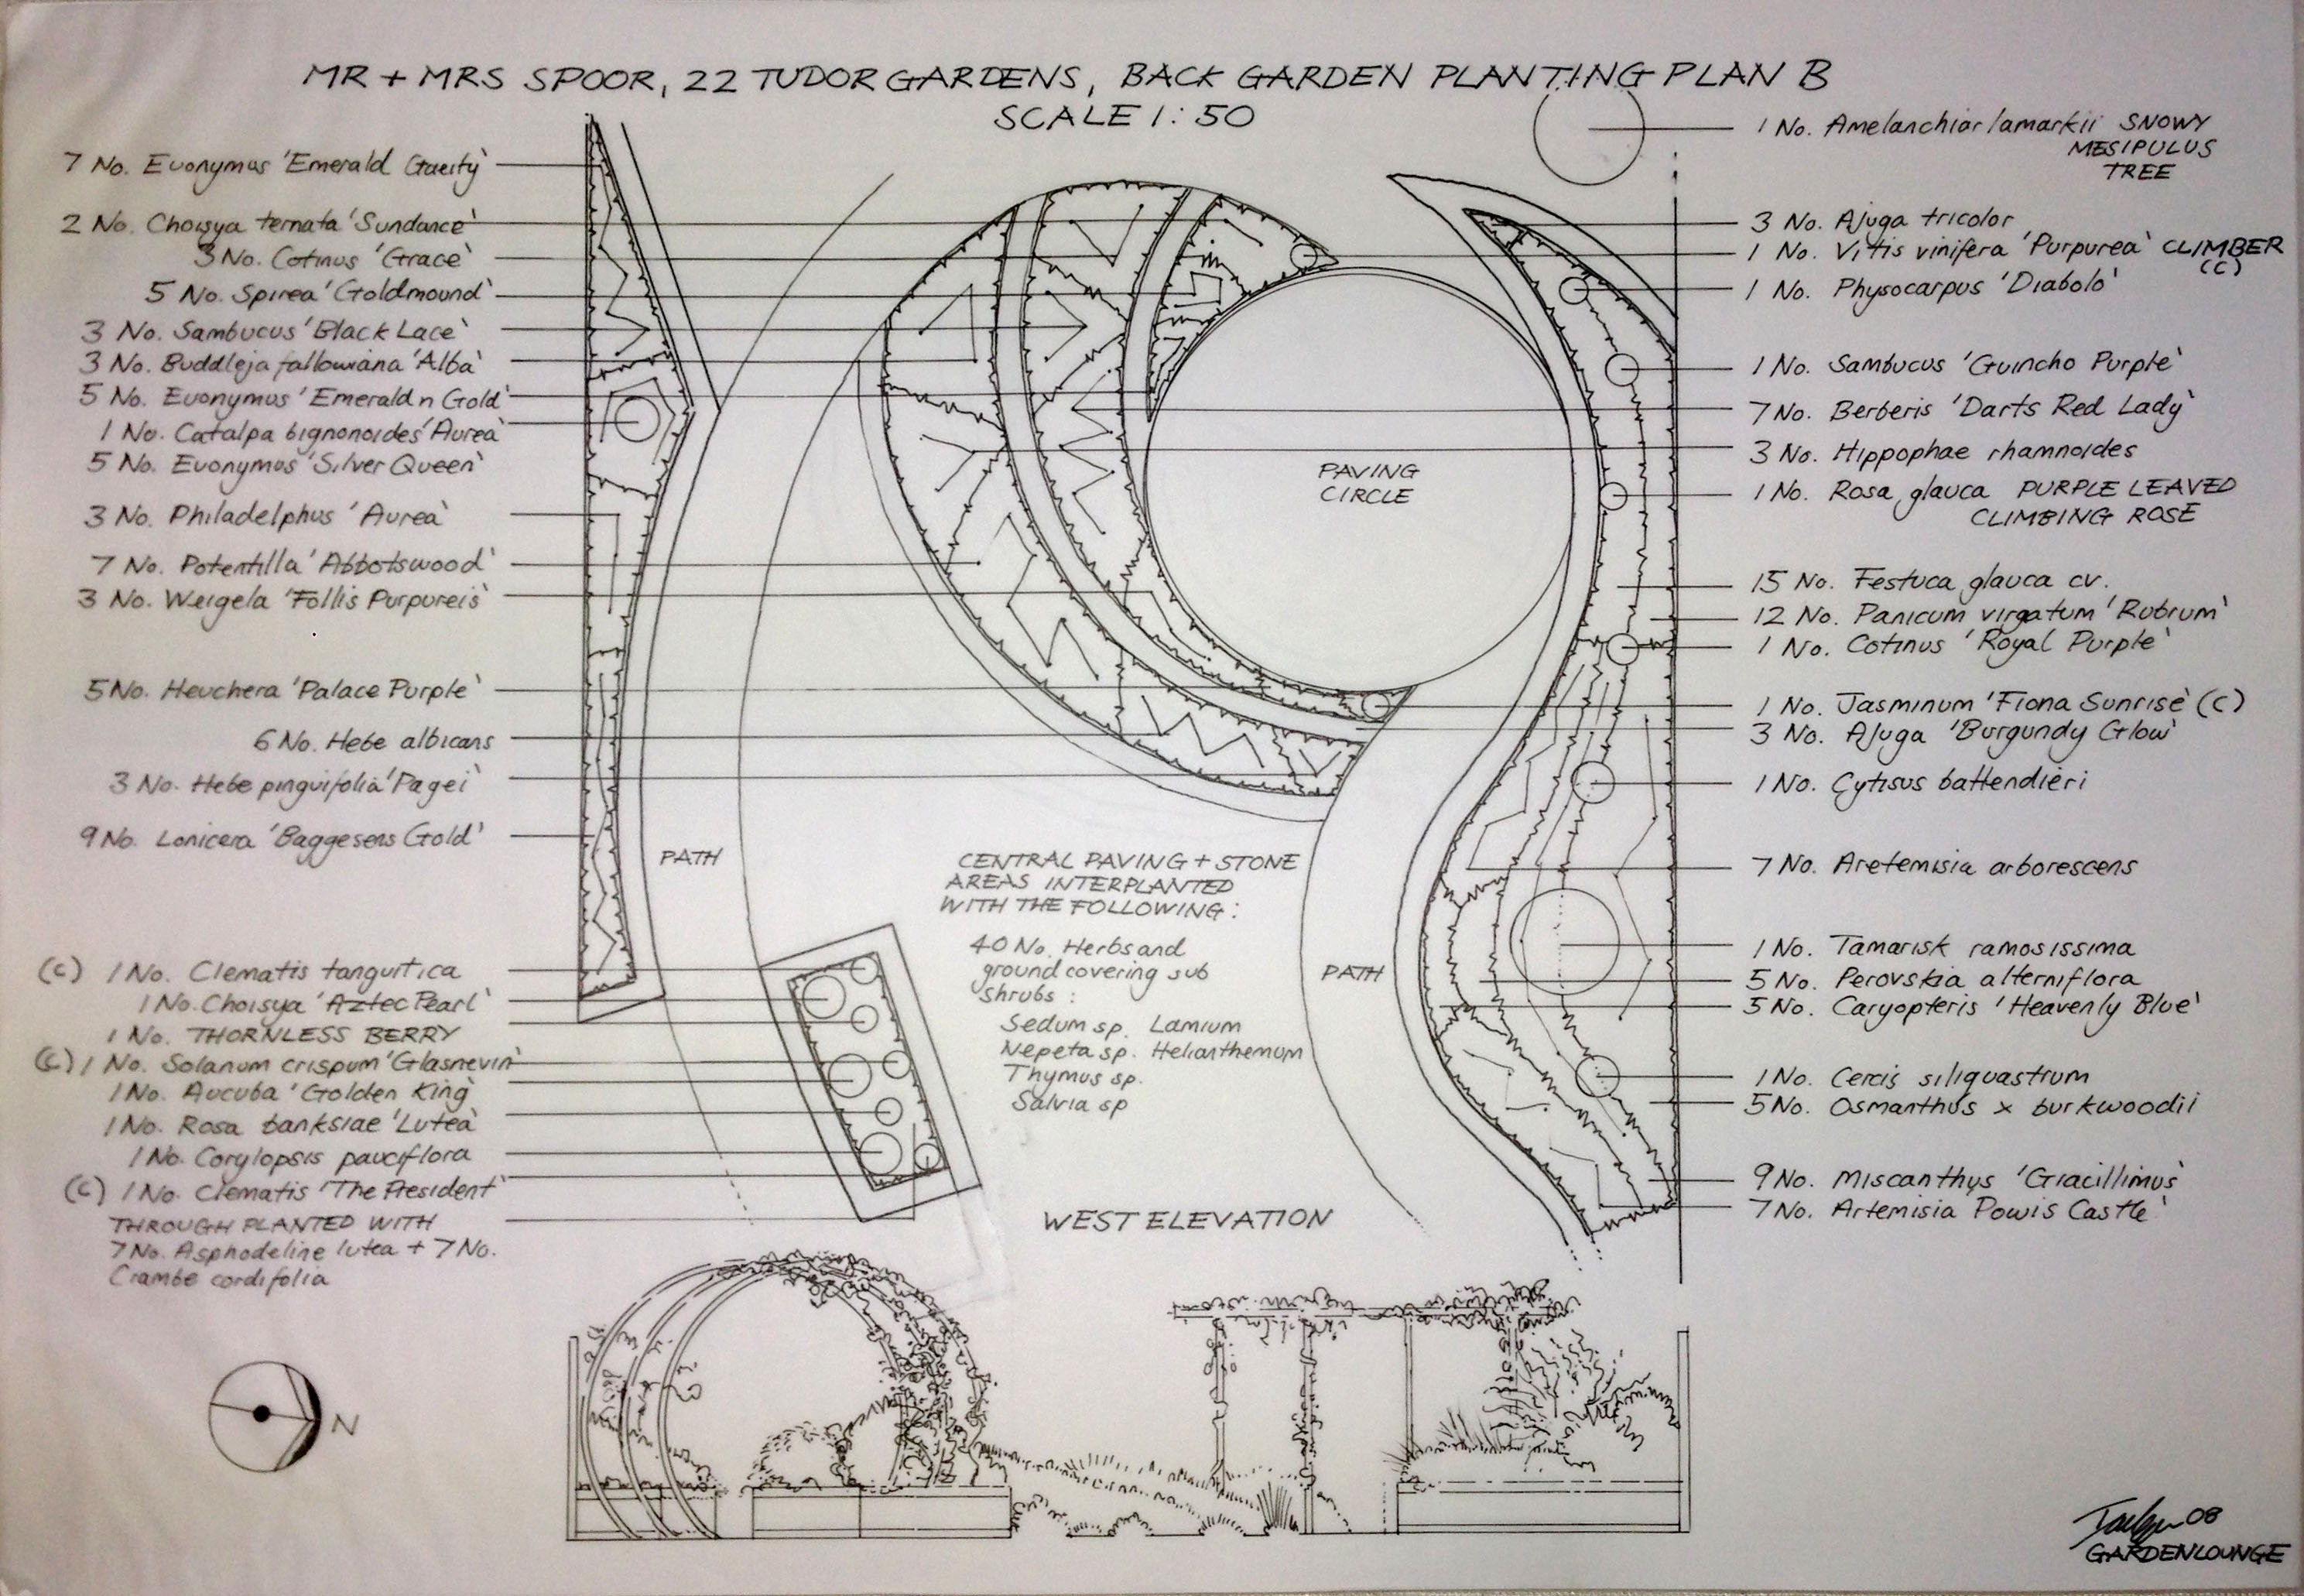 MR + MRS SPOOR, 22 TUDOR GARDENS, BACK GARDEN PLANTING PLAN B
SCALE 1:50
7 No. Euonymus 'Emerald Gaeity'
2 No. Choisya ternata 'Sundance'
3 No. Cotinus 'Grace'
5 No. Spirea 'Goldmound'
3 No. Sambucus 'Black Lace'
3 No. Buddleja fallowiana 'Alba'
5 No. Euonymus 'Emerald n Gold'
1 No. Catalpa bignonoides 'Aurea'
5 No. Euonymus 'Silver Queen'
3 No. Philadelphus 'Aurea'
7 No. Potentilla 'Abbotswood'
3 No. Weigela 'Follis Purpureis'
5 No. Heuchera 'Palace Purple'
6 No. Hebe albicans
3 No. Hebe pinguifolia 'Pagei'
9 No. Lonicera 'Baggesens Gold'
(C) 1 No. Clematis tanguitica
1 No. Choisya 'Aztec Pearl'
1 No. THORNLESS BERRY
(C) 1 No. Solanum crispum 'Glasnevin'
1 No. Aucuba 'Golden King'
1 No. Rosa banksiae 'Lutea'
1 No. Corylopsis pauciflora
(C) 1 No. Clematis 'The President'
THROUGH PLANTED WITH
7 No. Asphodeline lutea + 7 No.
Crambe cordifolia
N
PATH
PAVING
CIRCLE
CENTRAL PAVING + STONE
AREAS INTERPLANTED
WITH THE FOLLOWING:
40 No. Herbs and
ground covering sub
shrubs:
Sedum sp. Lamium
Nepeta sp. Helianthemum
Thymus sp.
Salvia sp
PATH
WEST ELEVATION
1 No. Amelanchior lamarkii SNOWY
MESIPULUS
TREE
3 No. Ajuga tricolor
1 No. Vitis vinifera 'Purpurea' CLIMBER
(C)
1 No. Physocarpus 'Diabolo'
1 No. Sambucus 'Guincho Purple'
7 No. Berberis 'Darts Red Lady'
3 No. Hippophae rhamnoides
1 No. Rosa glauca PURPLE LEAVED
CLIMBING ROSE
15 No. Festuca glauca cv.
12 No. Panicum virgatum 'Rubrum'
1 No. Cotinus 'Royal Purple'
1 No. Jasminum 'Fiona Sunrise' (C)
3 No. Ajuga 'Burgundy Glow'
1 No. Cytisus battendieri
7 No. Aretemisia arborescens
1 No. Tamarisk ramosissima
5 No. Perovskia alterniflora
5 No. Caryopteris 'Heavenly Blue'
1 No. Cercis siliquastrum
5 No. Osmanthus x burkwoodii
9 No. Miscanthys 'Gracillimus'
7 No. Artemisia Powis Castle'
08
GARDENLOUNGE